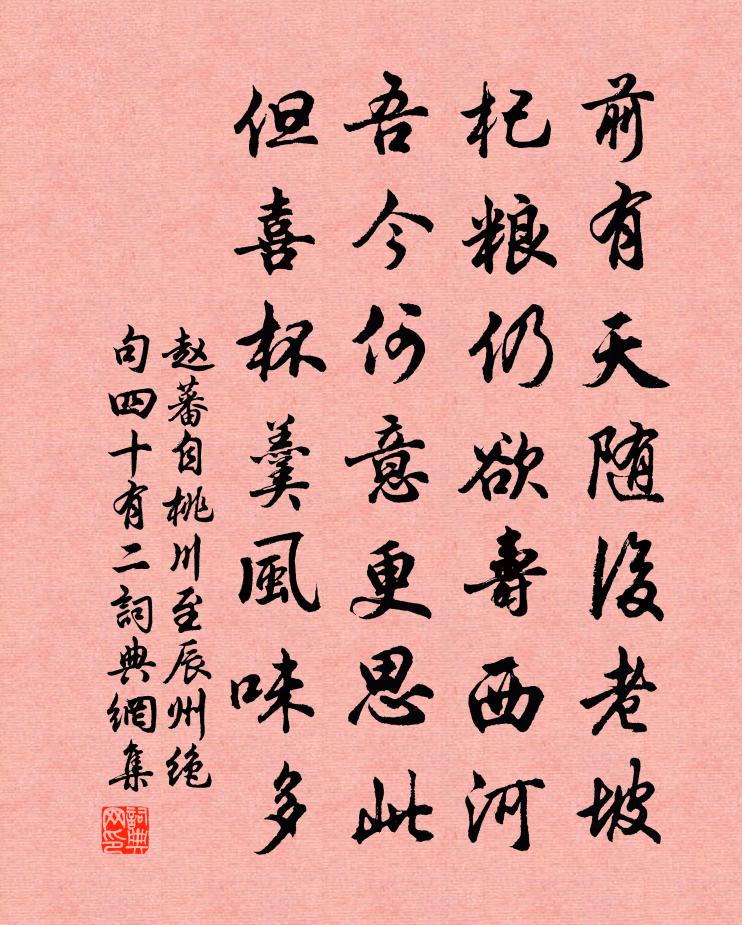 前有天随後老坡
杞粮仍欲壽西河
吾今何意更思此
但喜杯羹風味多
赵蕃自桃川至辰州绝
句四十有二詞典網集
詞典网印